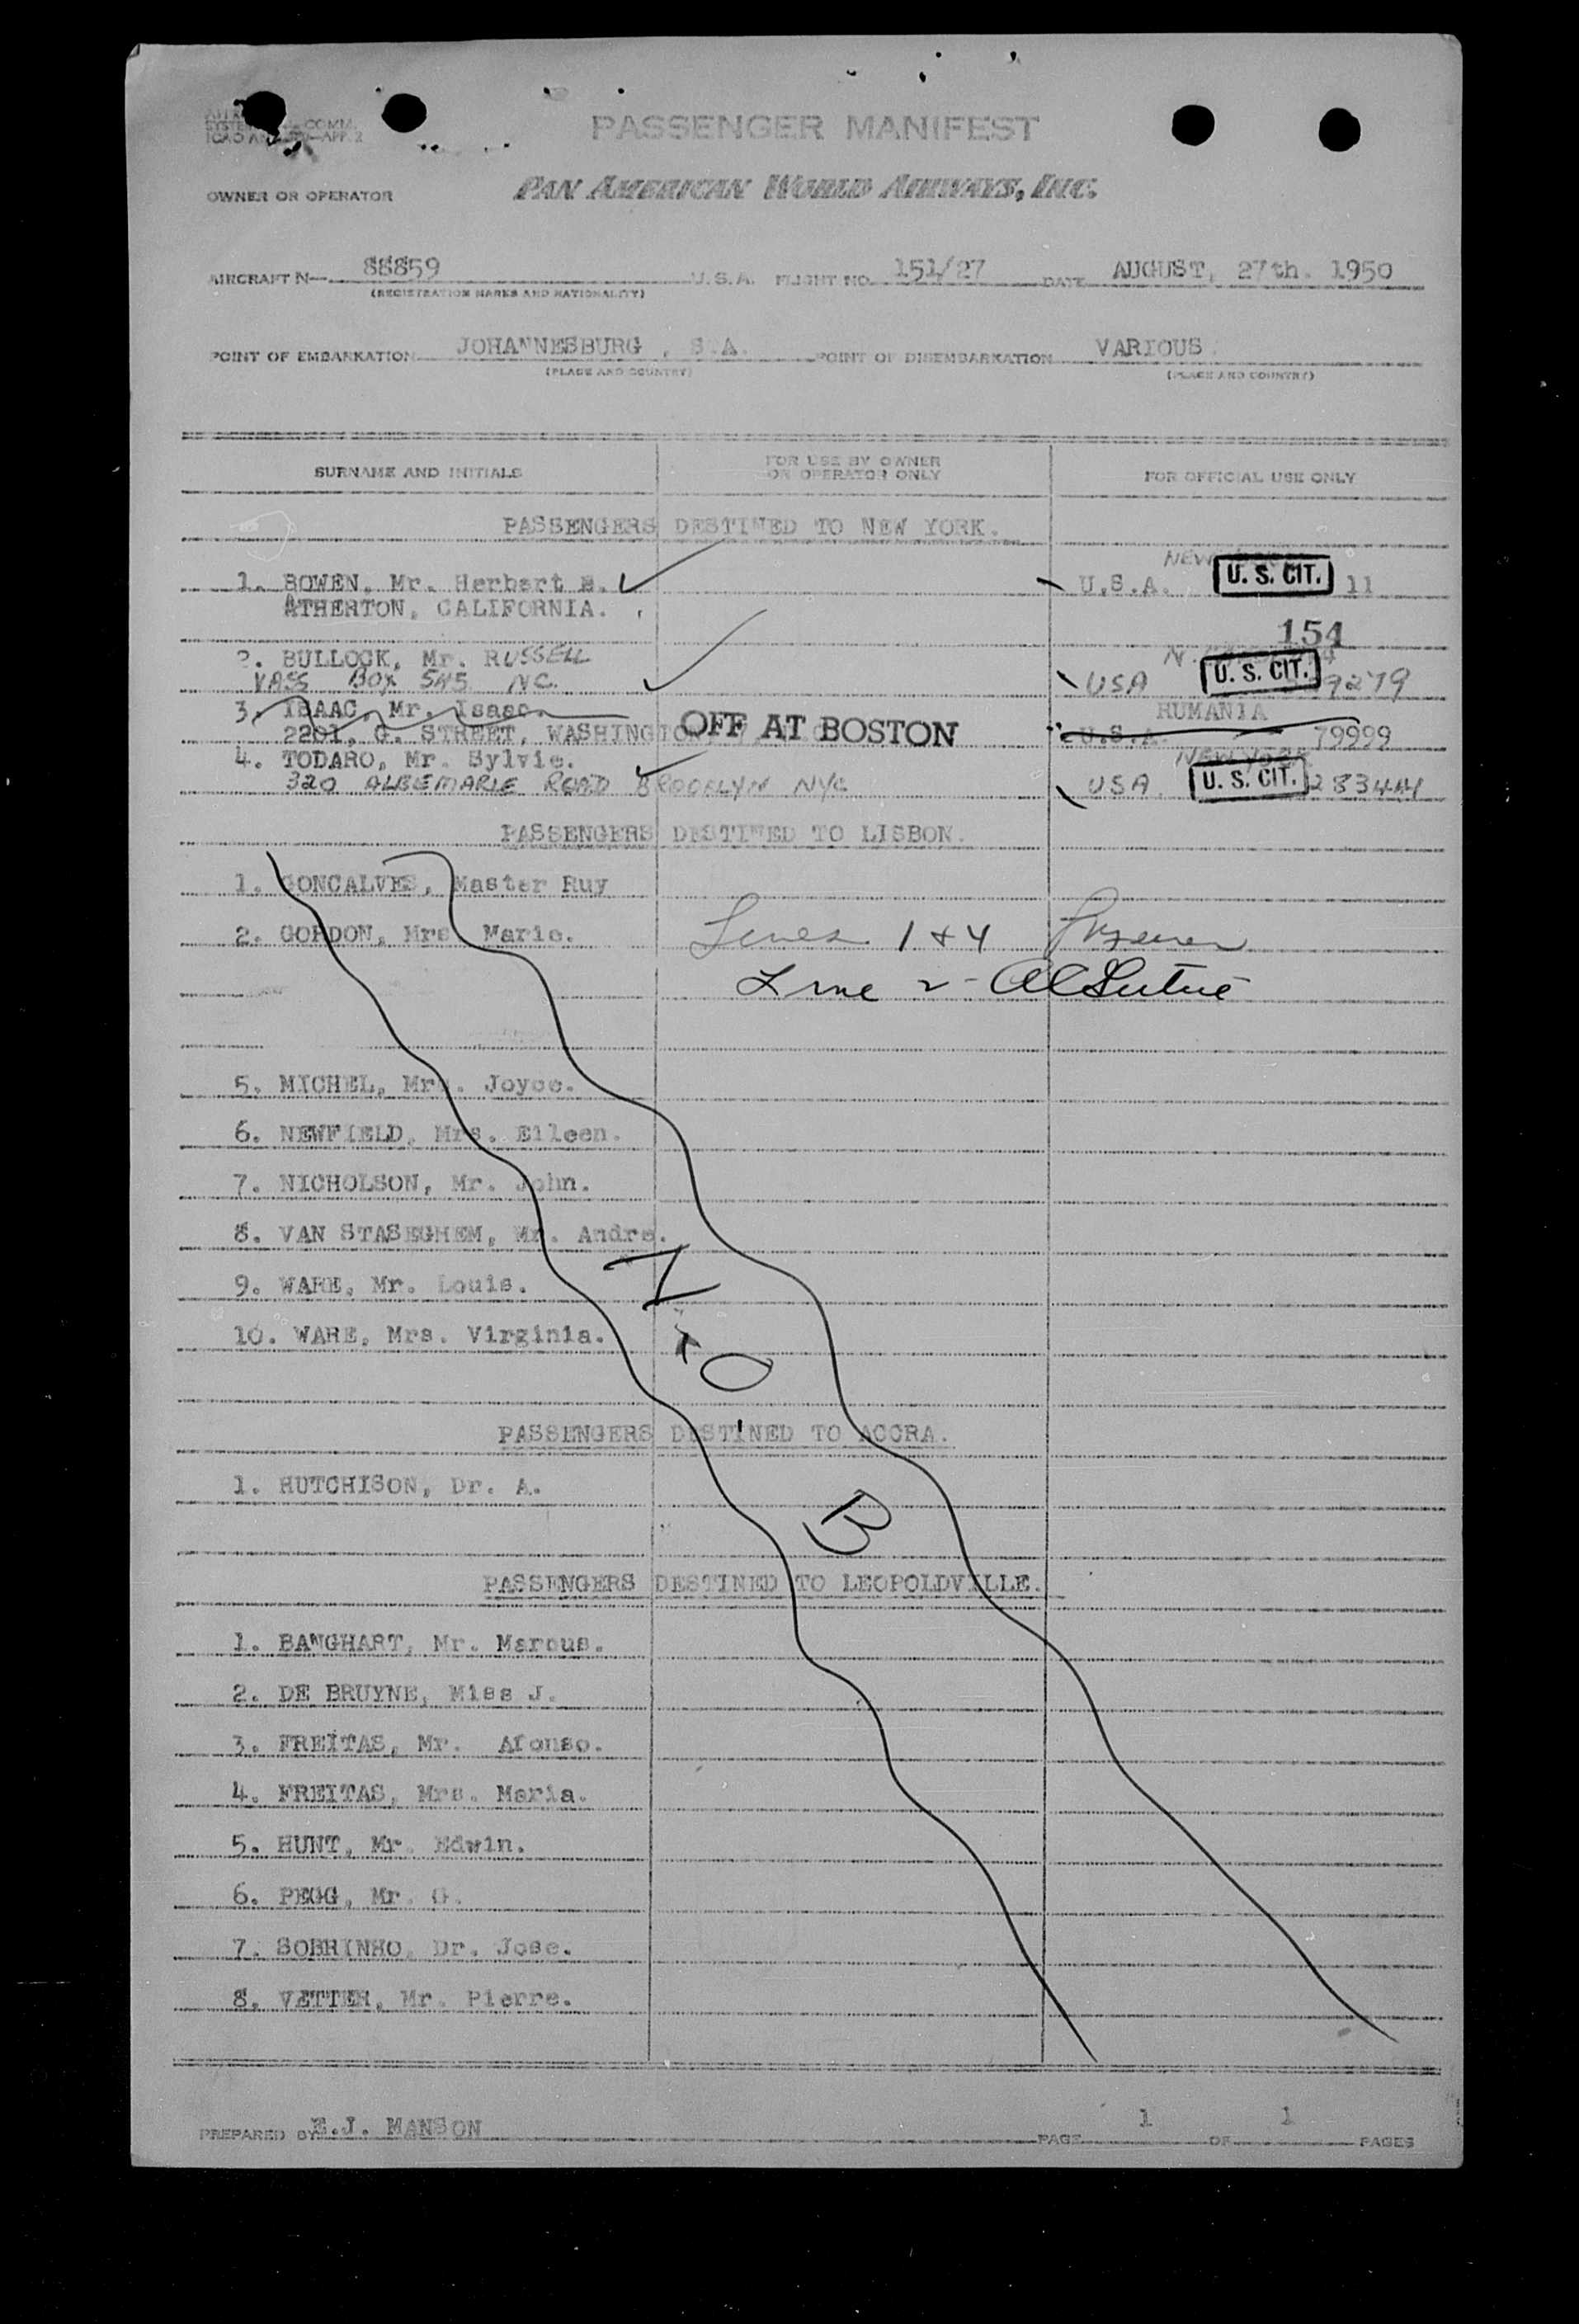 COMM.
APP. 2
PASSENGER MANIFEST
OWNER OR OPERATOR
PAN AMERICAN WORLD AIRWAYS, INC.
AIRCRAFT N— 88859 U.S.A. FLIGHT NO. 151/27 DATE AUGUST, 27th. 1950
(REGISTRATION MARKS AND NATIONALITY)
POINT OF EMBARKATION JOHANNESBURG , S.A. POINT OF DISEMBARKATION VARIOUS.
(PLACE AND COUNTRY) (PLACE AND COUNTRY)
SURNAME AND INITIALS
FOR USE BY OWNER
OR OPERATOR ONLY
FOR OFFICIAL USE ONLY
PASSENGERS DESTINED TO NEW YORK.
NEW
1. BOWEN, Mr. Herbert E. U.S.A. U. S. CIT. 11
ATHERTON, CALIFORNIA.
154
2. BULLOCK, Mr. RUSSELL
VASS BOX 545 NC. USA U. S. CIT. 9279
3. ISAAC, Mr. Isaac. RUMANIA
2201, G. STREET, WASHINGTON OFF AT BOSTON U.S.A. 79999
4. TODARO, Mr. Sylvie. NEW YORK
320 ALBEMARLE ROAD BROOKLYN NYC USA. U. S. CIT. 283444
PASSENGERS DESTINED TO LISBON.
1. GONCALVES, Master Ruy
2. GORDON, Mrs. Marie. Lines 1 & 4
Line 2 -
5. MICHEL, Mrs. Joyce.
6. NEWFIELD, Mrs. Eileen.
7. NICHOLSON, Mr. John.
8. VAN STASEGHEM, Mr. Andre.
9. WARE, Mr. Louis.
10. WARE, Mrs. Virginia.
N.O.B
PASSENGERS DESTINED TO ACCRA.
1. HUTCHISON, Dr. A.
PASSENGERS DESTINED TO LEOPOLDVILLE.
1. BANGHART, Mr. Marcus.
2. DE BRUYNE, Miss J.
3. FREITAS, Mr. Afonso.
4. FREITAS, Mrs. Maria.
5. HUNT, Mr. Edwin.
6. PEGG, Mr. G.
7. SOBRINHO, Dr. Jose.
8. VETTER, Mr. Pierre.
PREPARED BY E.J. MANSON PAGE 1 OF 1 PAGES